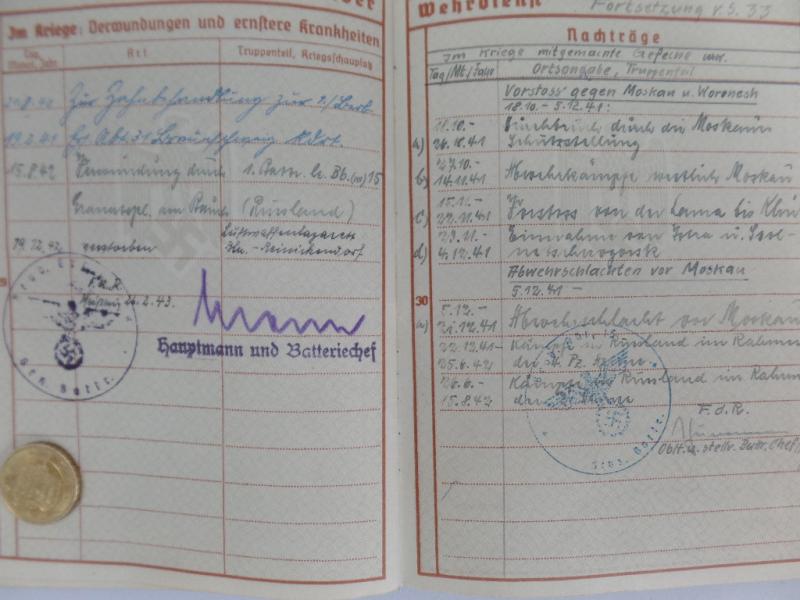 Im Kriege: Verwundungen und ernstere Krankheiten
Tag, Monat, Jahr
Art
Truppenteil, Kriegsschauplatz
Zur Zahnbehandlung zur
19.2.41
15.8.42 Verwundung durch 1. Battr. le. Bb. (m) 15
Granatspl. am Bauch (Russland)
19.12.42 verstorben Luftwaffenlazarett
Bln. - Reinickendorf
F.d.R.
26.2.43.
Hauptmann und Batteriechef
Wehrdienst
Fortsetzung v. S. 33
Nachträge
Im Kriege mitgemachte Gefechte usw.
Tag/Mt/Jahr Ortsangabe, Truppenteil
Vorstoss gegen Moskau u. Woronesh
18.10. - 5.12.41:
18.10. - Durchbruch durch die Moskauer
a) 26.10.41 Schutzstellung
27.10. -
b) 14.11.41 Abwehrkämpfe westlich Moskau
15.11. -
c) 22.11.41 Vorstoss von der Lama bis Klin
23.11. - Einnahme von Istra u. Ssol-
d) 4.12.41 netschnogorsk
Abwehrschlachten vor Moskau
5.12.41 -
30
5.12. -
a) 21.12.41 Abwehrschlacht vor Moskau
22.12.41 - Kämpfe in Russland im Rahmen
25.6.42 der 4. Pz. Armee
26.6. - Kämpfe in Russland im Rahmen
15.8.42 der
F.d.R.
Oblt. u. stellv. Battr. Chef